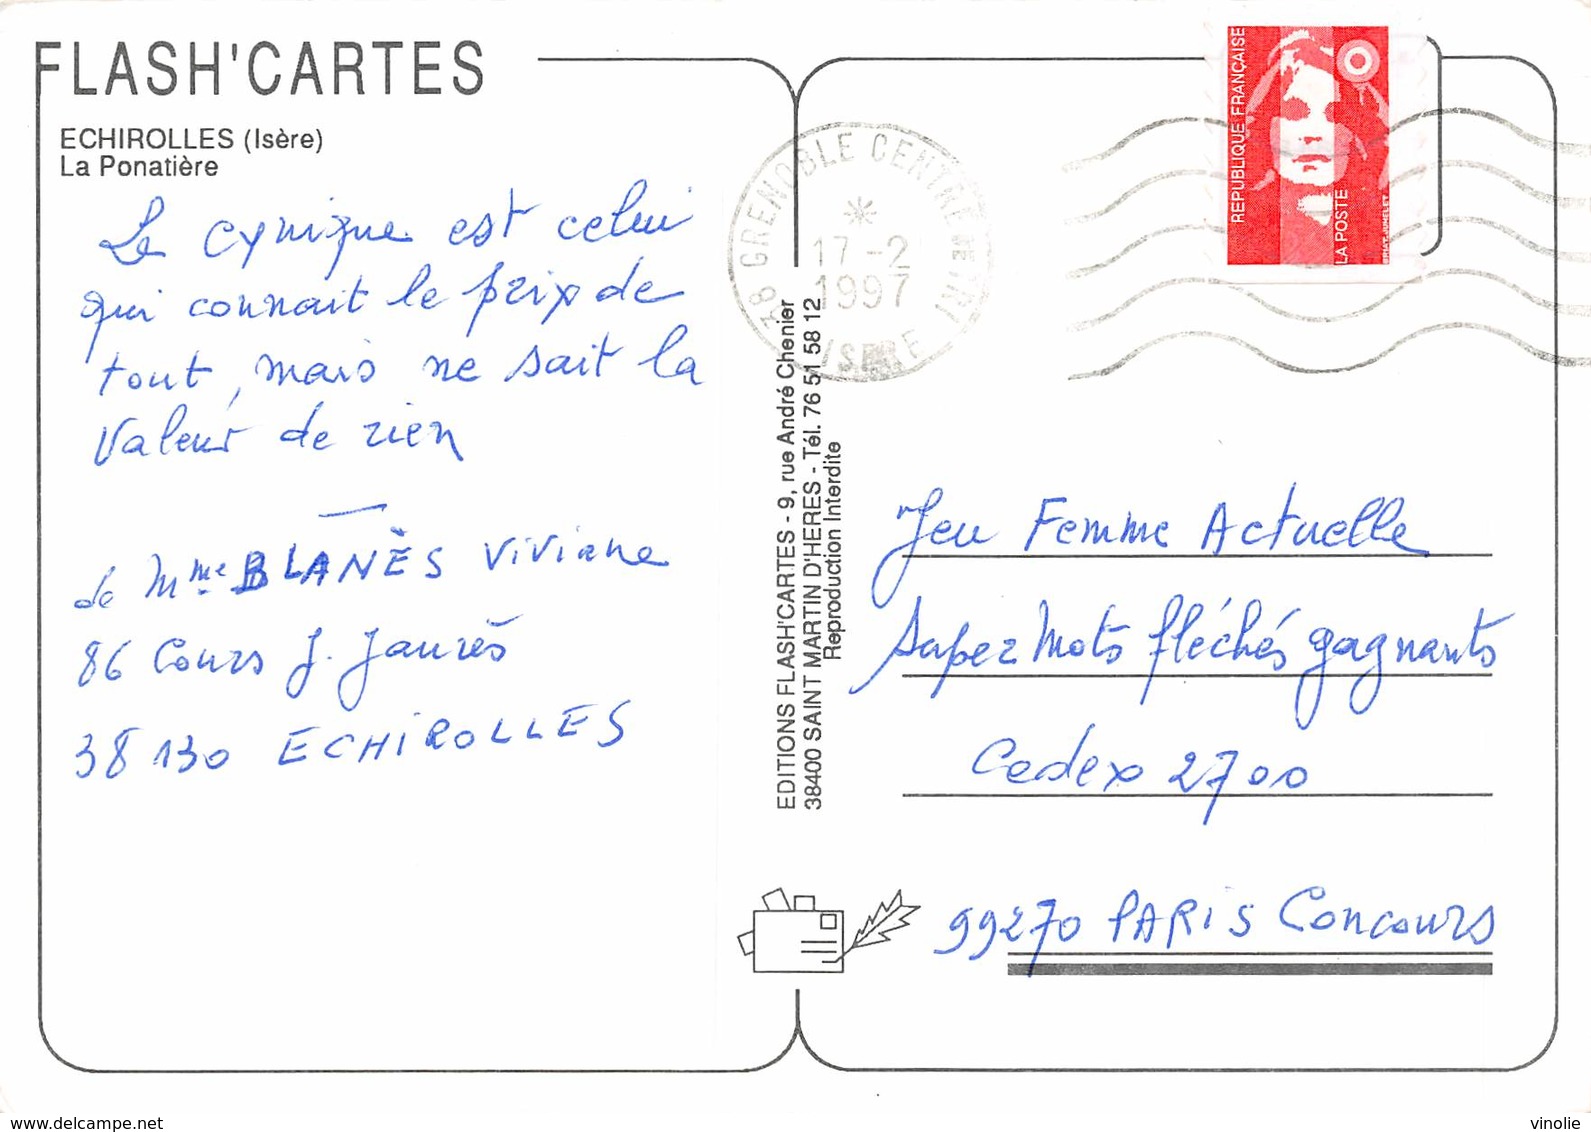 FLASH'CARTES
ECHIROLLES (Isère)
La Ponatière
Le cynique est celui
qui connait le prix de
tout, mais ne sait la
valeur de rien
de Mme BLANÈS Viviane
86 Cours J. Jaurès
38130 ECHIROLLES
EDITIONS FLASH'CARTES - 9, rue André Chenier
38400 SAINT MARTIN D'HERES - Tél. 76 51 58 12
Reproduction Interdite
38 GRENOBLE CENTRE DE TRI
17-2
1997
ISERE
REPUBLIQUE FRANÇAISE
LA POSTE
BRIAT-JUMELET
Jeu Femme Actuelle
Super Mots fléchés gagnants
Cedex 2700
99270 PARIS Concours
www.delcampe.net
vinolie